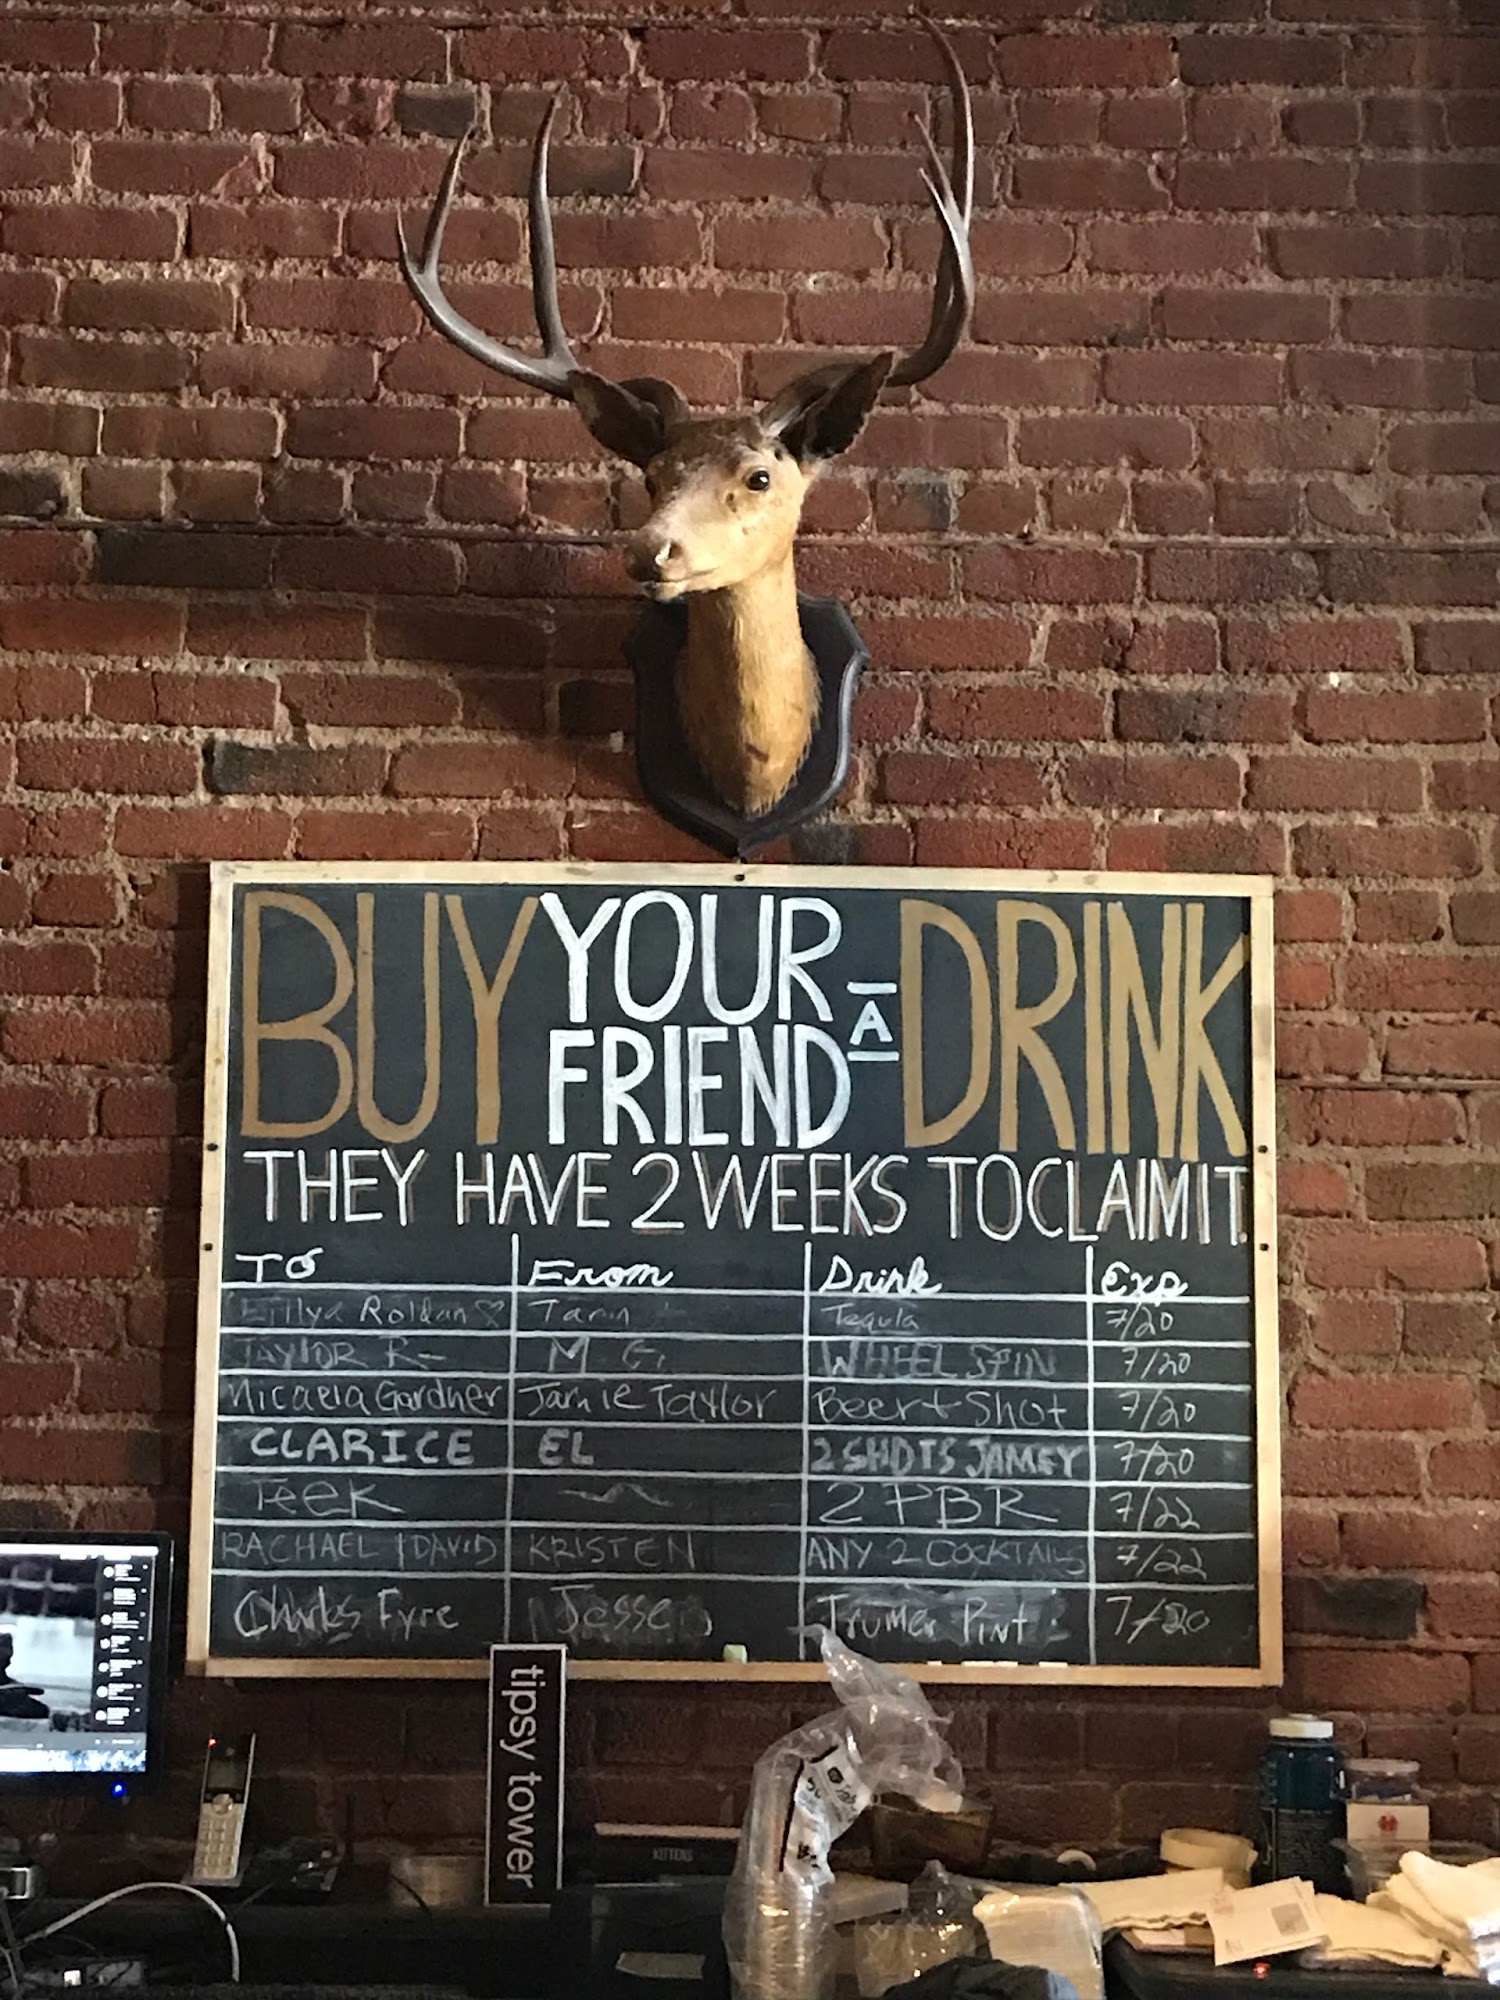 BUY YOUR FRIEND A DRINK
THEY HAVE 2 WEEKS TO CLAIM IT
TO From Drink Exp
Roldan ♡ Tarin Tequila 7/20
TAYLOR R- M G. WHEEL SPIN 7/20
Micaela Gardner Jamie Taylor Beer + Shot 7/20
CLARICE EL 2 SHOTS JAMEY 7/20
Teek 2 PBR 7/22
RACHAEL + DAVID KRISTEN ANY 2 COCKTAILS 7/22
Charles Fyre Jesse Trumer Pint 7/20
tipsy tower
KITTENS